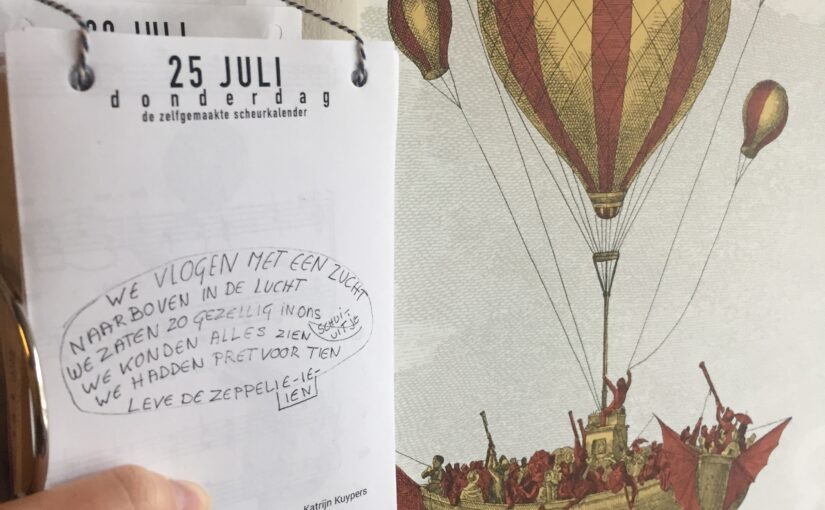 JULI
25 JULI
donderdag
de zelfgemaakte scheurkalender
WE VLOGEN MET EEN ZUCHT
NAAR BOVEN IN DE LUCHT
WE ZATEN ZO GEZELLIG IN ONS
SCHUIT-
UITJE
WE KONDEN ALLES ZIEN
WE HADDEN PRET VOOR TIEN
LEVE DE ZEPPELIE-IE-
IEN
Katrijn Kuypers